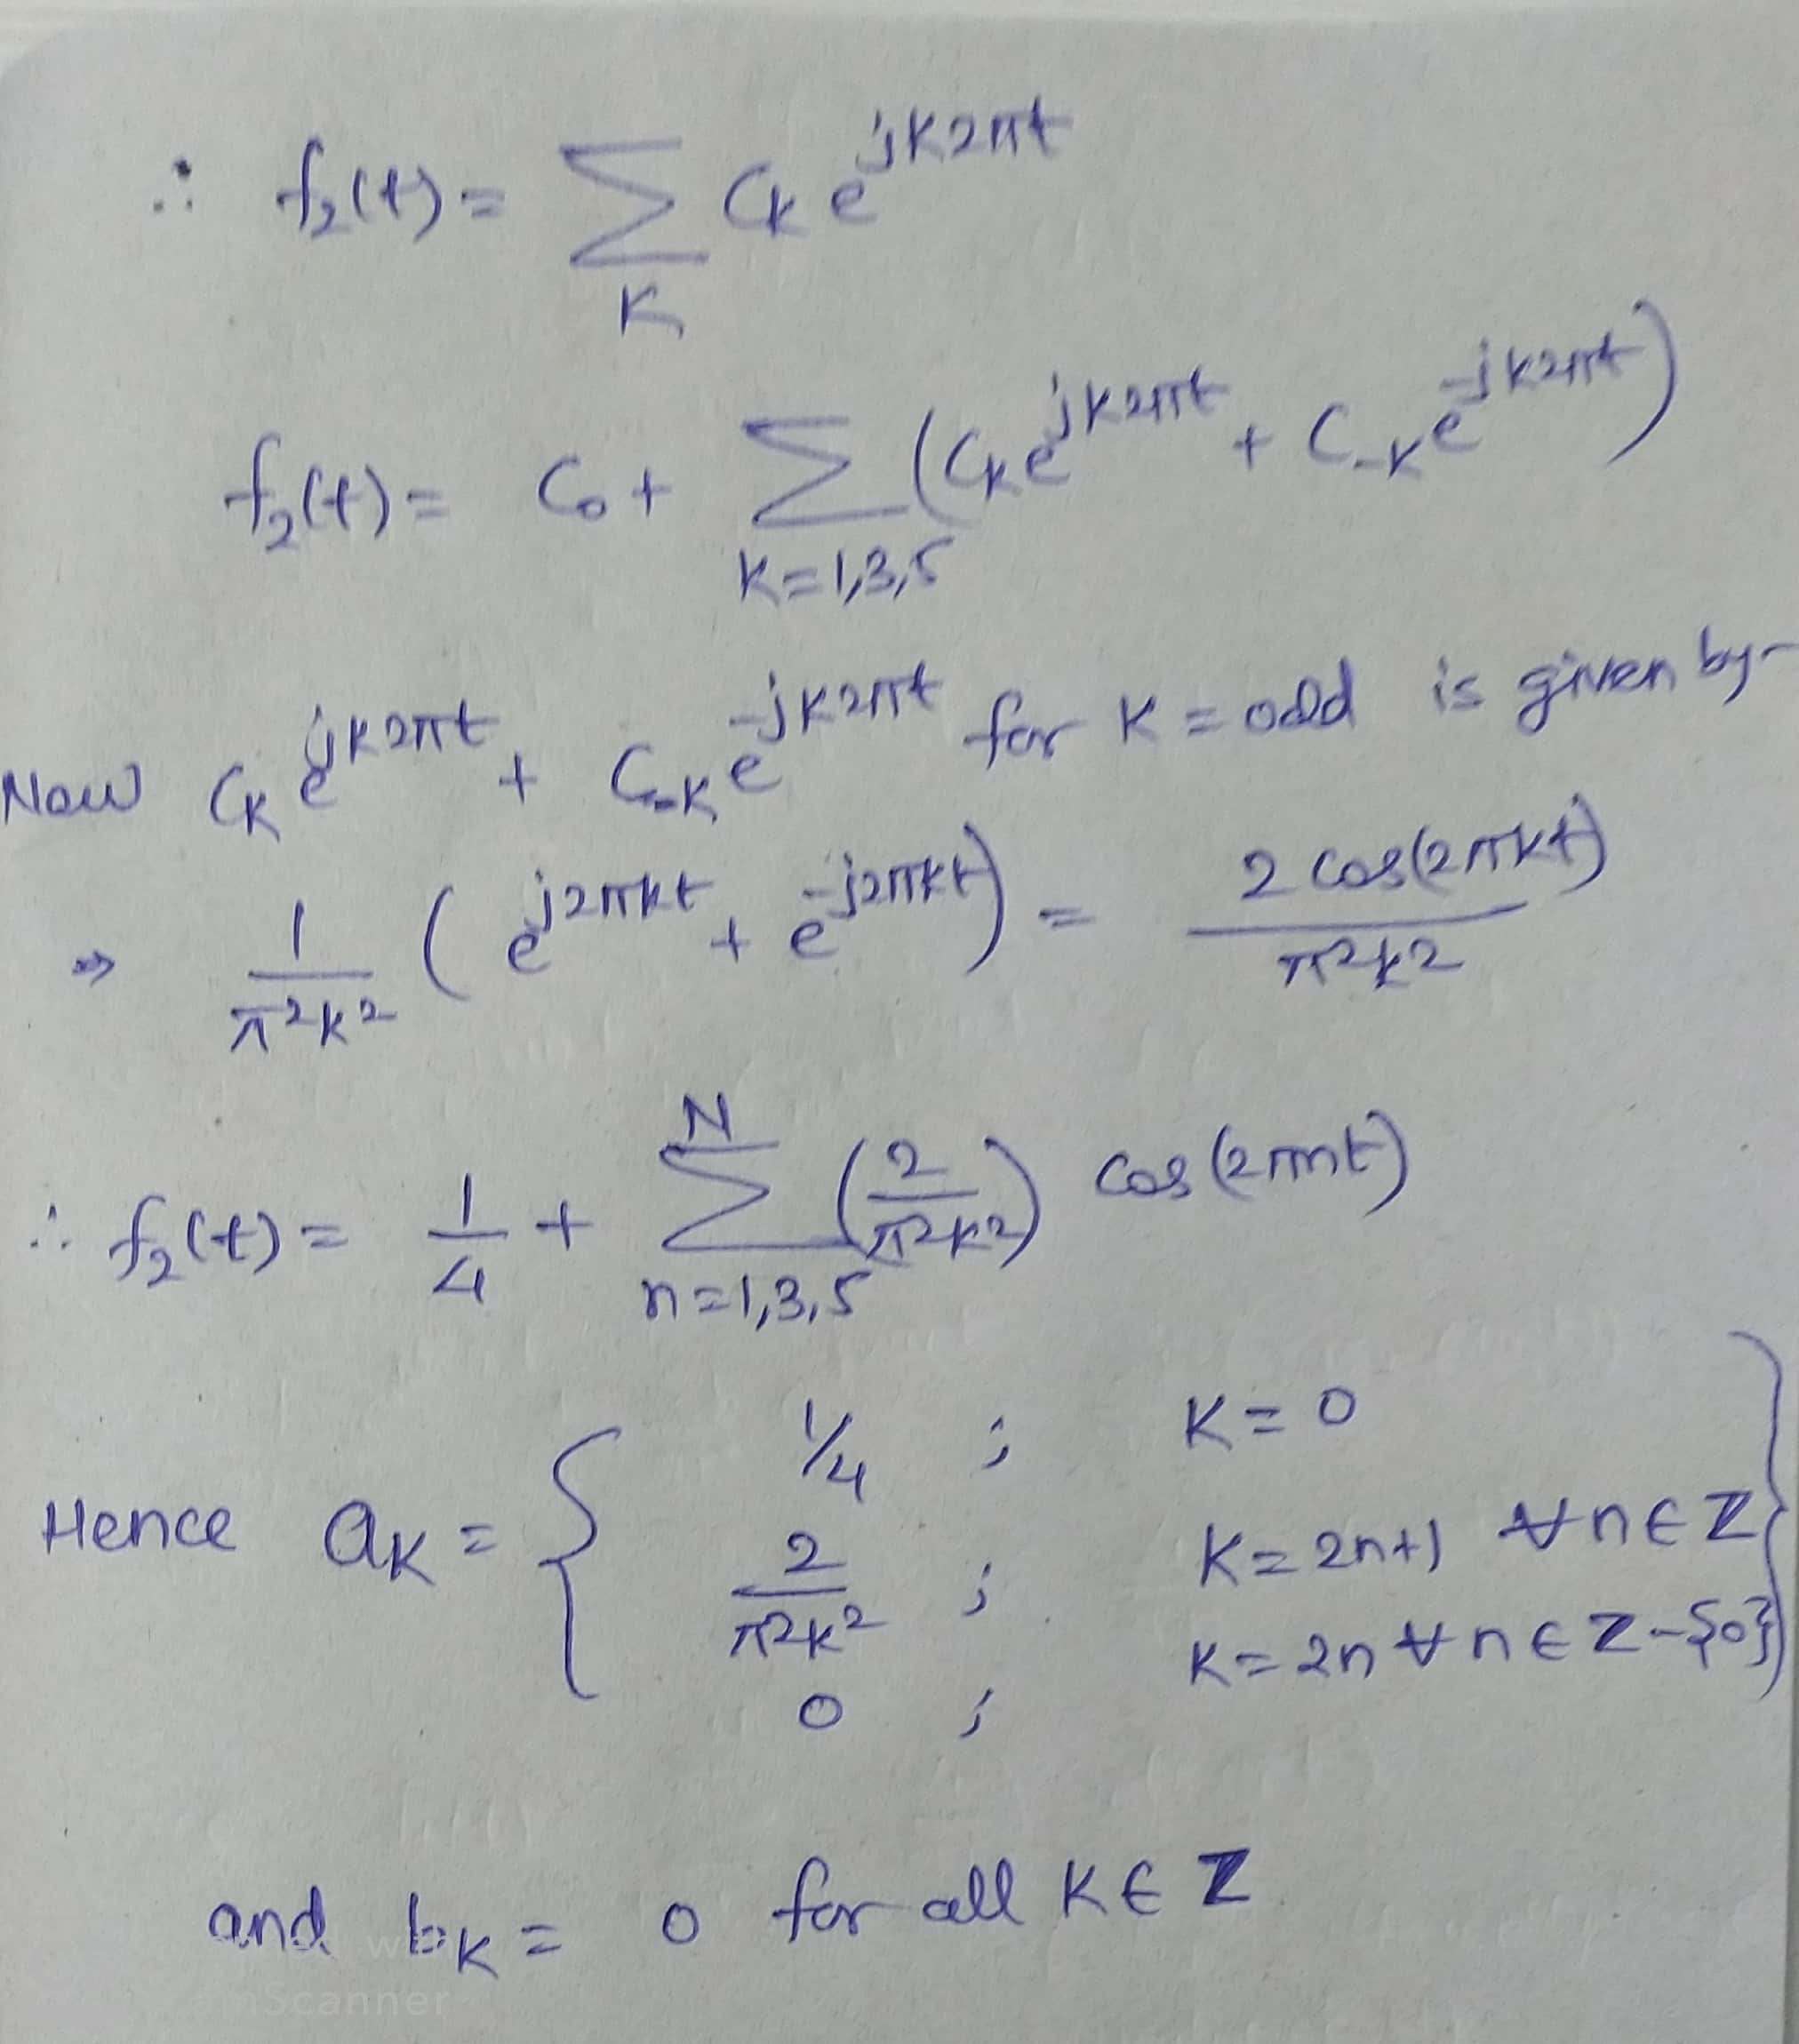 ∴ f₂(t) = Σ_K C_K e^{jK2πt}
f₂(t) = C₀ + Σ_{K=1,3,5} (C_K e^{jK2πt} + C_{-K} e^{-jK2πt})
Now C_K e^{jK2πt} + C_{-K} e^{-jK2πt} for K = odd is given by-
⇒ 1/(π²K²) (e^{j2πKt} + e^{-j2πKt}) = 2 cos(2πKt)/(π²K²)
∴ f₂(t) = 1/4 + Σ_{n=1,3,5}^{N} (2/(π²K²)) cos(2πnt)
Hence a_K = { 1/4 ; K = 0
2/(π²K²) ; K = 2n+1 ∀ n ∈ Z
0 ; K = 2n ∀ n ∈ Z-{0} }
and b_K = 0 for all K ∈ Z
Scanner